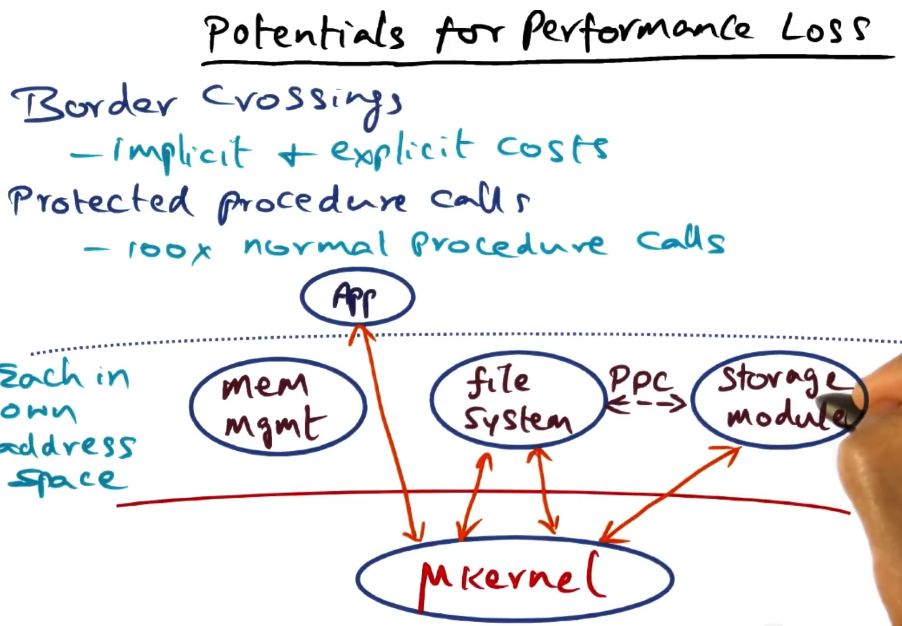 Potentials for Performance Loss
Border Crossings
– implicit + explicit costs
Protected procedure calls
– 100x normal procedure calls
App
Each in
own
address
space
mem
mgmt
file
system
PPC
storage
module
μkernel